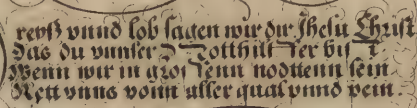 reyß vnnd lob sagen wir dir Jhesu Christ
Das du vnnser Notthilffer bist
Wenn wir in gros denn nodttenn sein
Rett vnns vonn aller qual vnnd pein